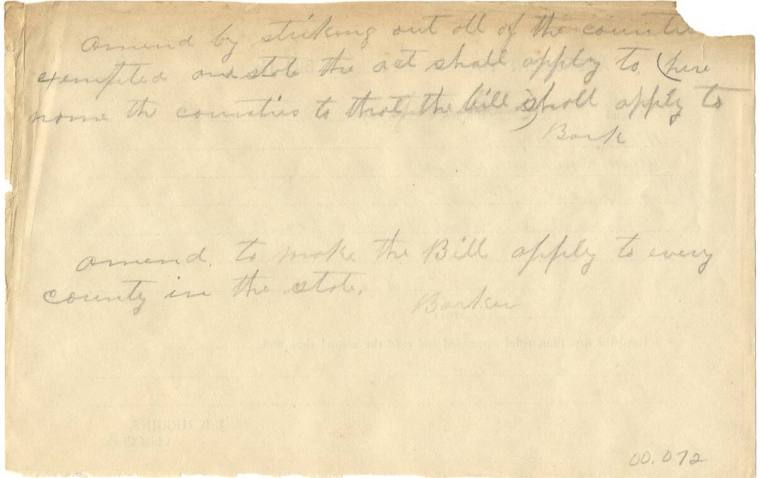 amend by striking out all of the counties
exempted and state the act shall apply to (here
name the counties to that the bill) shall apply to
Bark
amend. to make the Bill apply to every
county in the state.
Barker
00.072